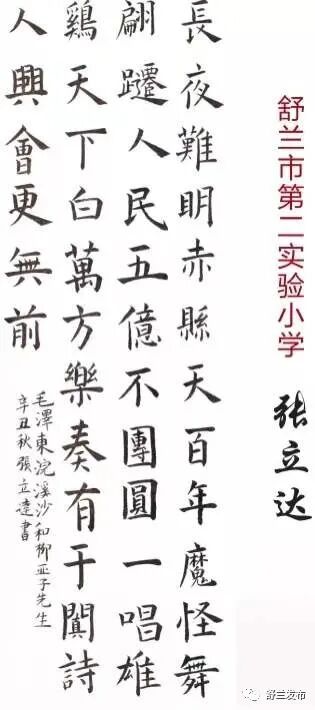 舒兰市第二实验小学
张立达
長夜難明赤縣天百年魔怪舞
翩躚人民五億不團圓一唱雄
鷄天下白萬方樂奏有于闐詩
人興會更無前
毛澤東浣溪沙和柳亚子先生
辛丑秋張立達書
舒兰发布